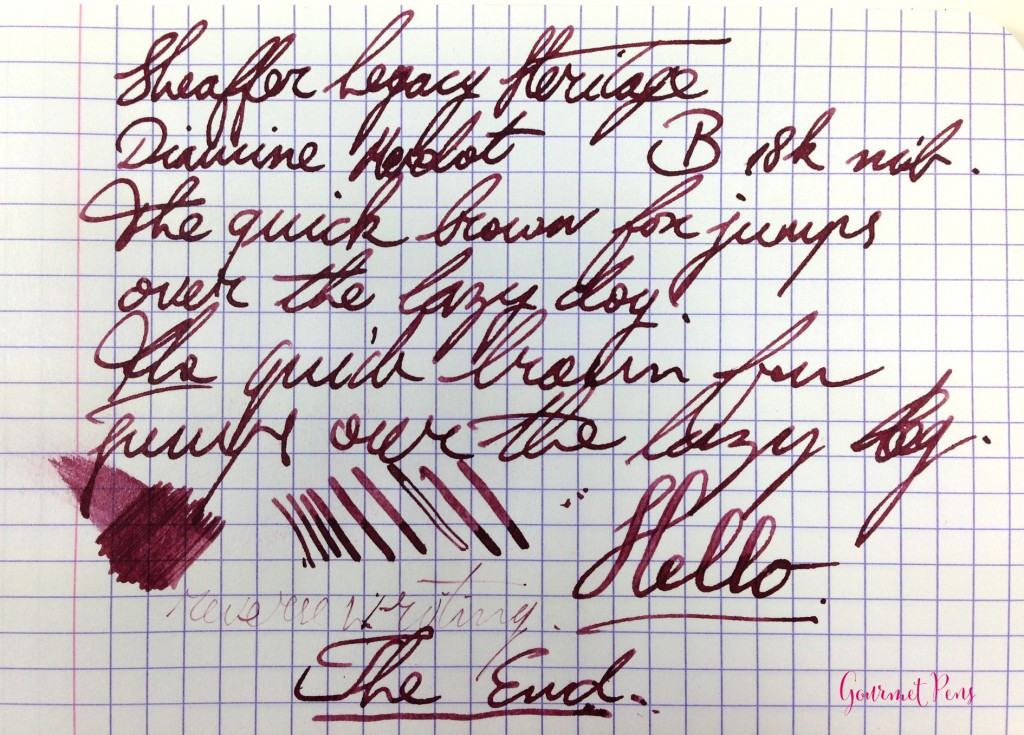 Sheaffer Legacy Heritage
Diamine Merlot B 18k nib.
The quick brown fox jumps
over the lazy dog.
The quick brown fox
jumps over the lazy dog.
Hello.
reverse writing.
The End.
Gourmet Pens